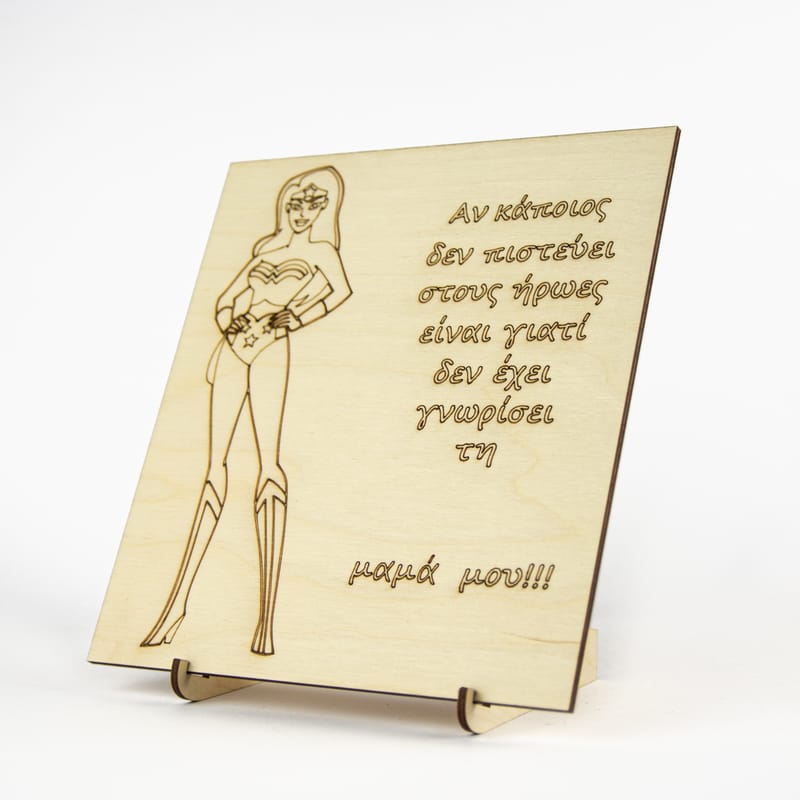 Αν κάποιος
δεν πιστεύει
στους ήρωες
είναι γιατί
δεν έχει
γνωρίσει
τη
μαμά μου!!!